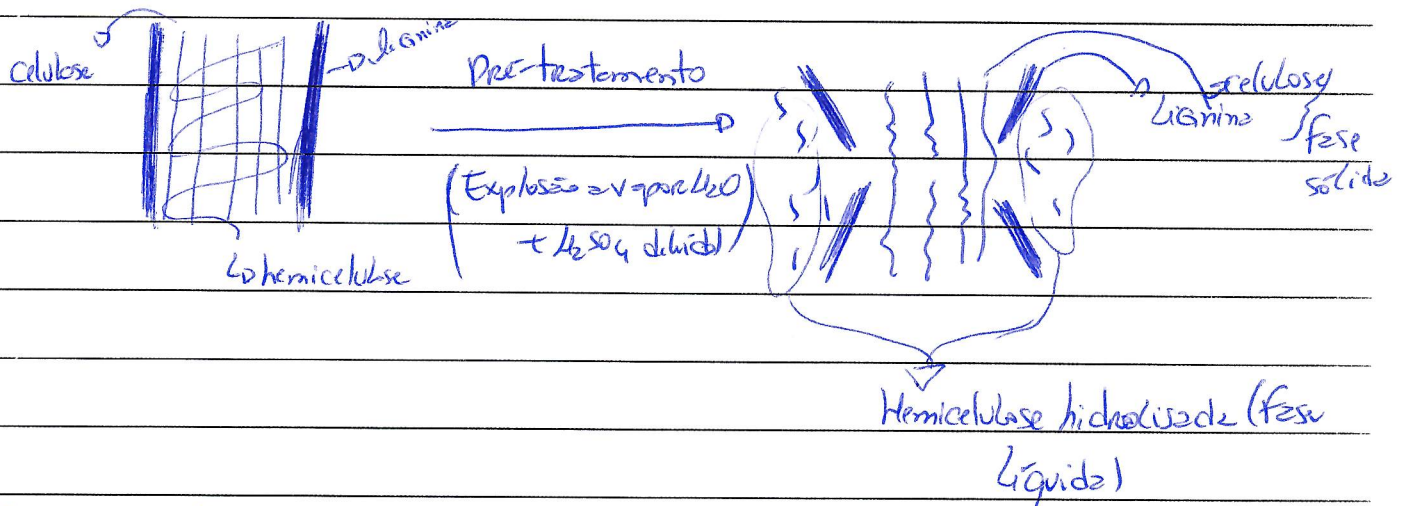 celulose
lignina
Pré-tratamento
(Explosão a vapor H2O
+ H2SO4 diluído)
hemicelulose
celulose
Lignina
fase
sólida
Hemicelulose hidrolisada (fase
líquida)